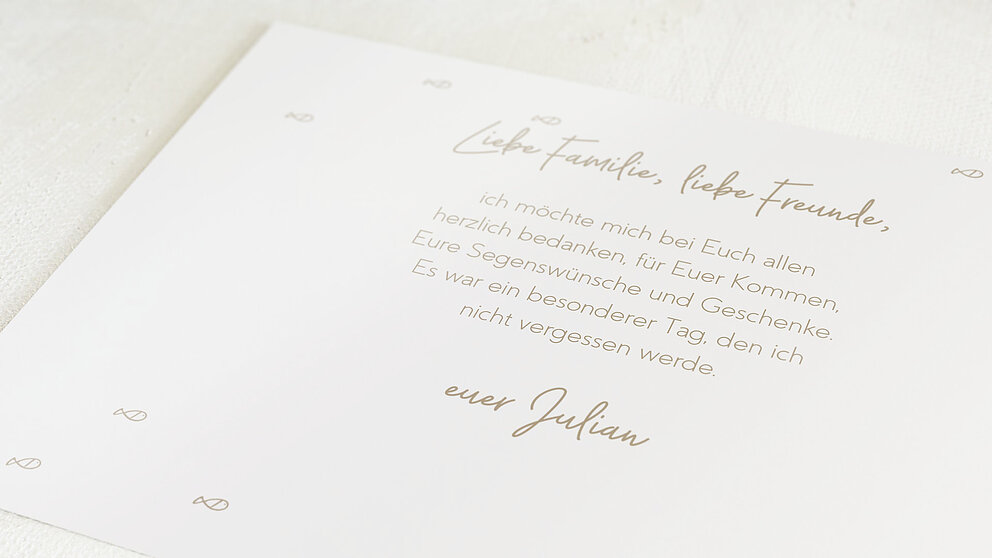 Liebe Familie, liebe Freunde,
ich möchte mich bei Euch allen
herzlich bedanken, für Euer Kommen,
Eure Segenswünsche und Geschenke.
Es war ein besonderer Tag, den ich
nicht vergessen werde.
euer Julian